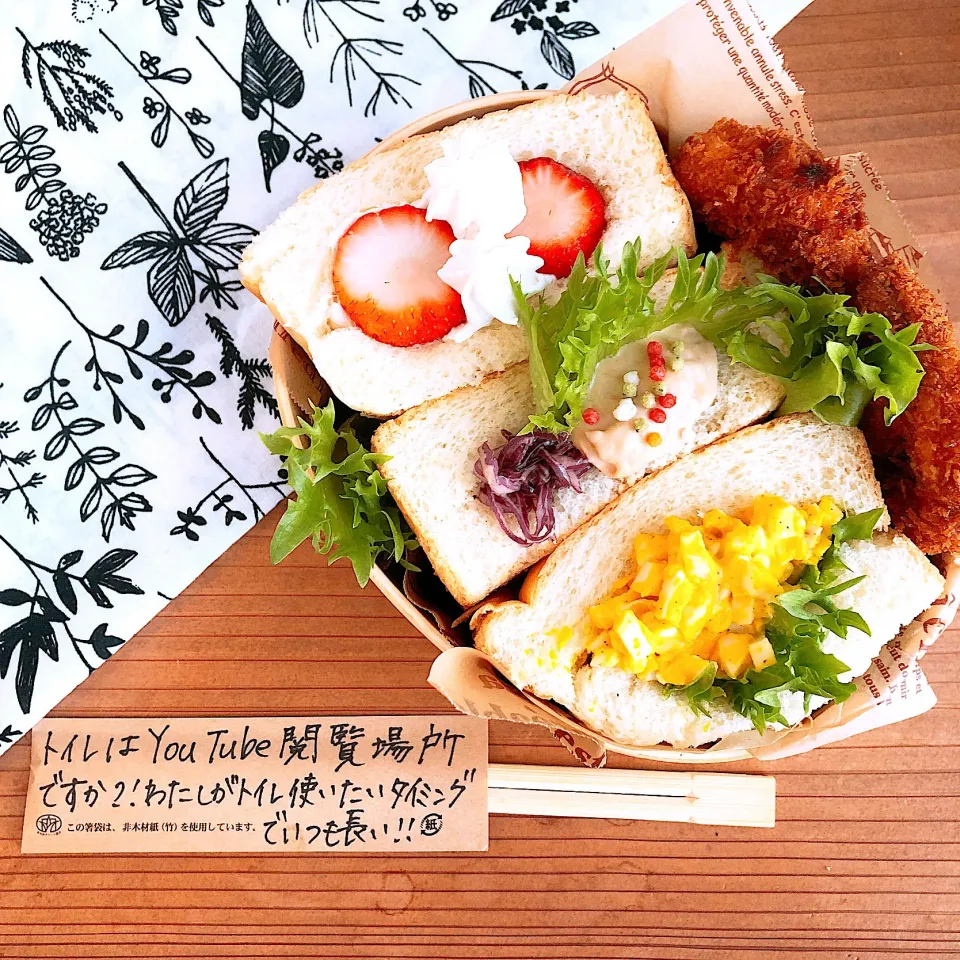 protéger une quantité modér
venable annule stress. C'es
sucrée
トイレはYouTube閲覧場所
ですか?!わたしがトイレ使いたいタイミング
でいつも長い!!
この箸袋は、非木材紙(竹)を使用しています。
紙